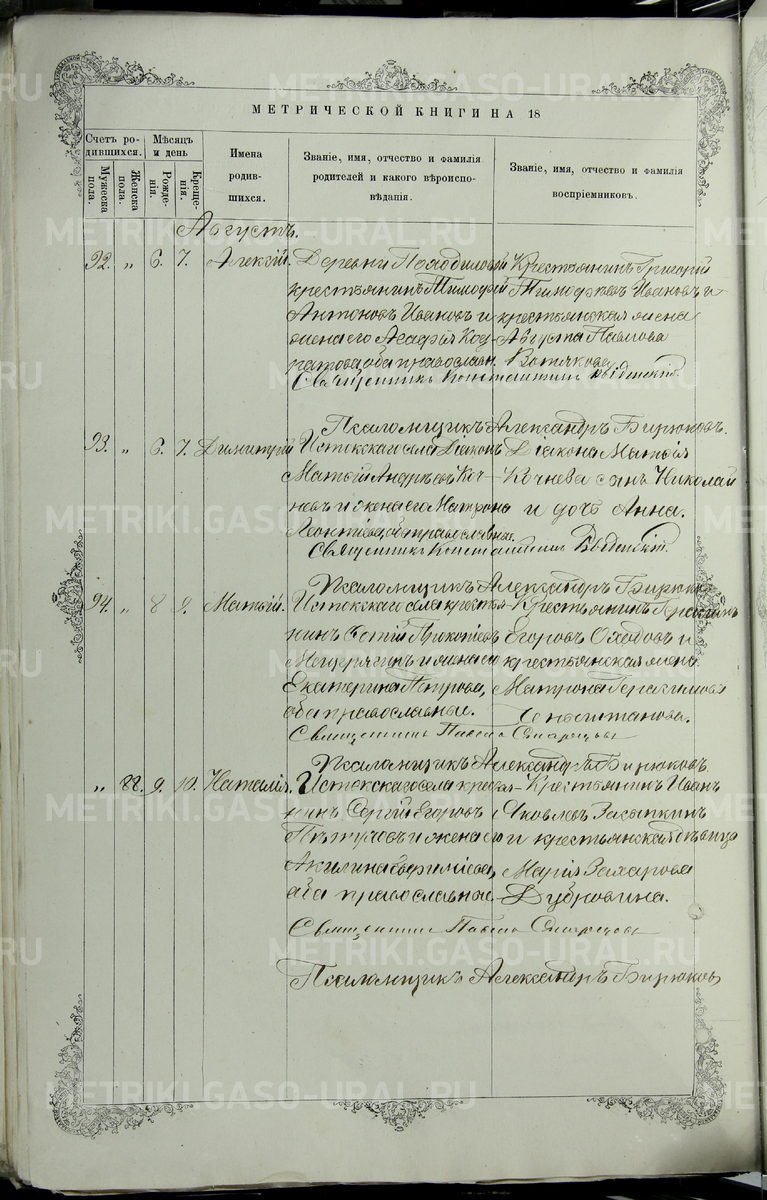 МЕТРИЧЕСКОЙ КНИГИ НА 18
Счетъ ро-
дившихся.
Мужеска
пола.
Женска
пола.
Мѣсяцъ
и день
Рожде-
нія.
Креще-
нія.
Имена
родив-
шихся.
Званіе, имя, отчество и фамилія
родителей и какого вѣроиспо-
вѣданія.
Званіе, имя, отчество и фамилія
воспріемниковъ.
Августъ.
92. „ 6. 7. Алексій. Деревни
крестьянинъ Тимофей
Антоновъ Ивановъ и
жена его Агафія Код-
ратова, оба православн.
Крестьянинъ Григорій
Тимофѣевъ Ивановъ и
крестьянская жена
Августа Павлова
Вотякова.
Священникъ Константинъ
Псаломщикъ Александръ Бирюковъ.
93. „ 6. 7. Димитрій Истокскаго села Діаконъ
Матѳій Андреевъ Коч-
невъ и жена его Матрона
Леонтіева, оба православные.
Діакона Матѳія
Кочнева сынъ Николай
и дочь Анна.
Священникъ Константинъ
Псаломщикъ Александръ Бирюковъ
94. „ 8 9. Матѳій. Истокскаго села крестья-
нинъ Прокопіевъ
Мещерягинъ и жена его
Екатерина Петрова,
оба православные.
Крестьянинъ
Егоровъ Оходовъ и
крестьянская жена
Матрона Герасимова
Священникъ Павелъ
Псаломщикъ Александръ Бирюковъ.
„ 88. 9. 10. Наталія. Истокскаго села крестья-
нинъ Сергій Егоровъ
Пѣтуховъ и жена его
Акилина Евфиміева,
оба православные.
Крестьянинъ Иванъ
Яковлевъ Засыпкинъ
и крестьянская дѣвица
Марія Захарова
Дубровина.
Священникъ Павелъ
Псаломщикъ Александръ Бирюковъ
METRIKI.GASO-URAL.RU